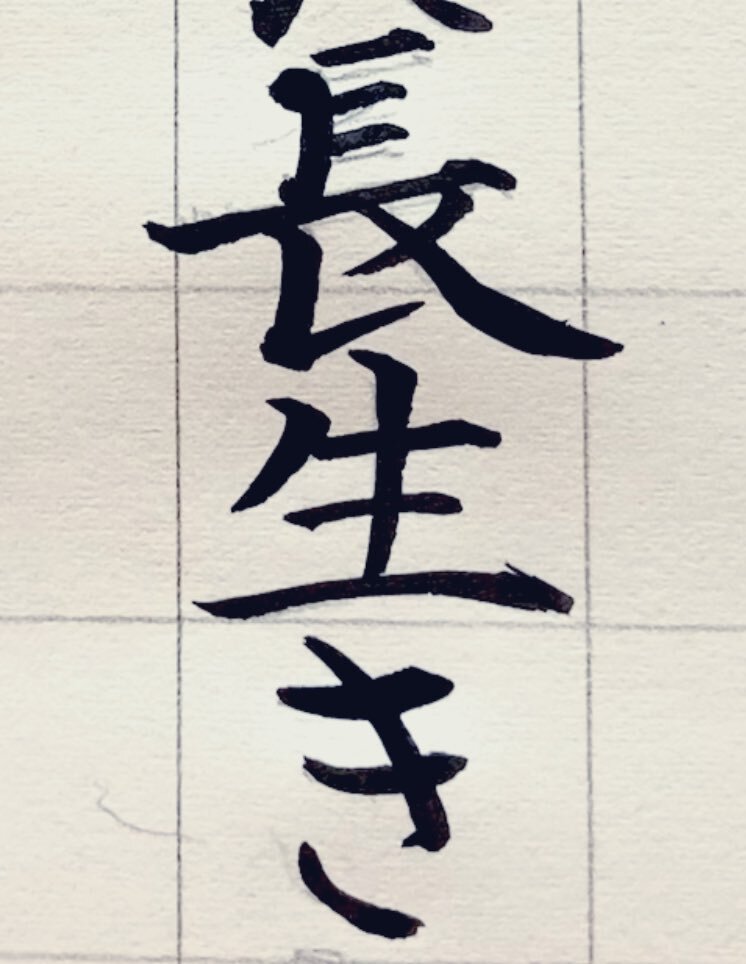 長生き